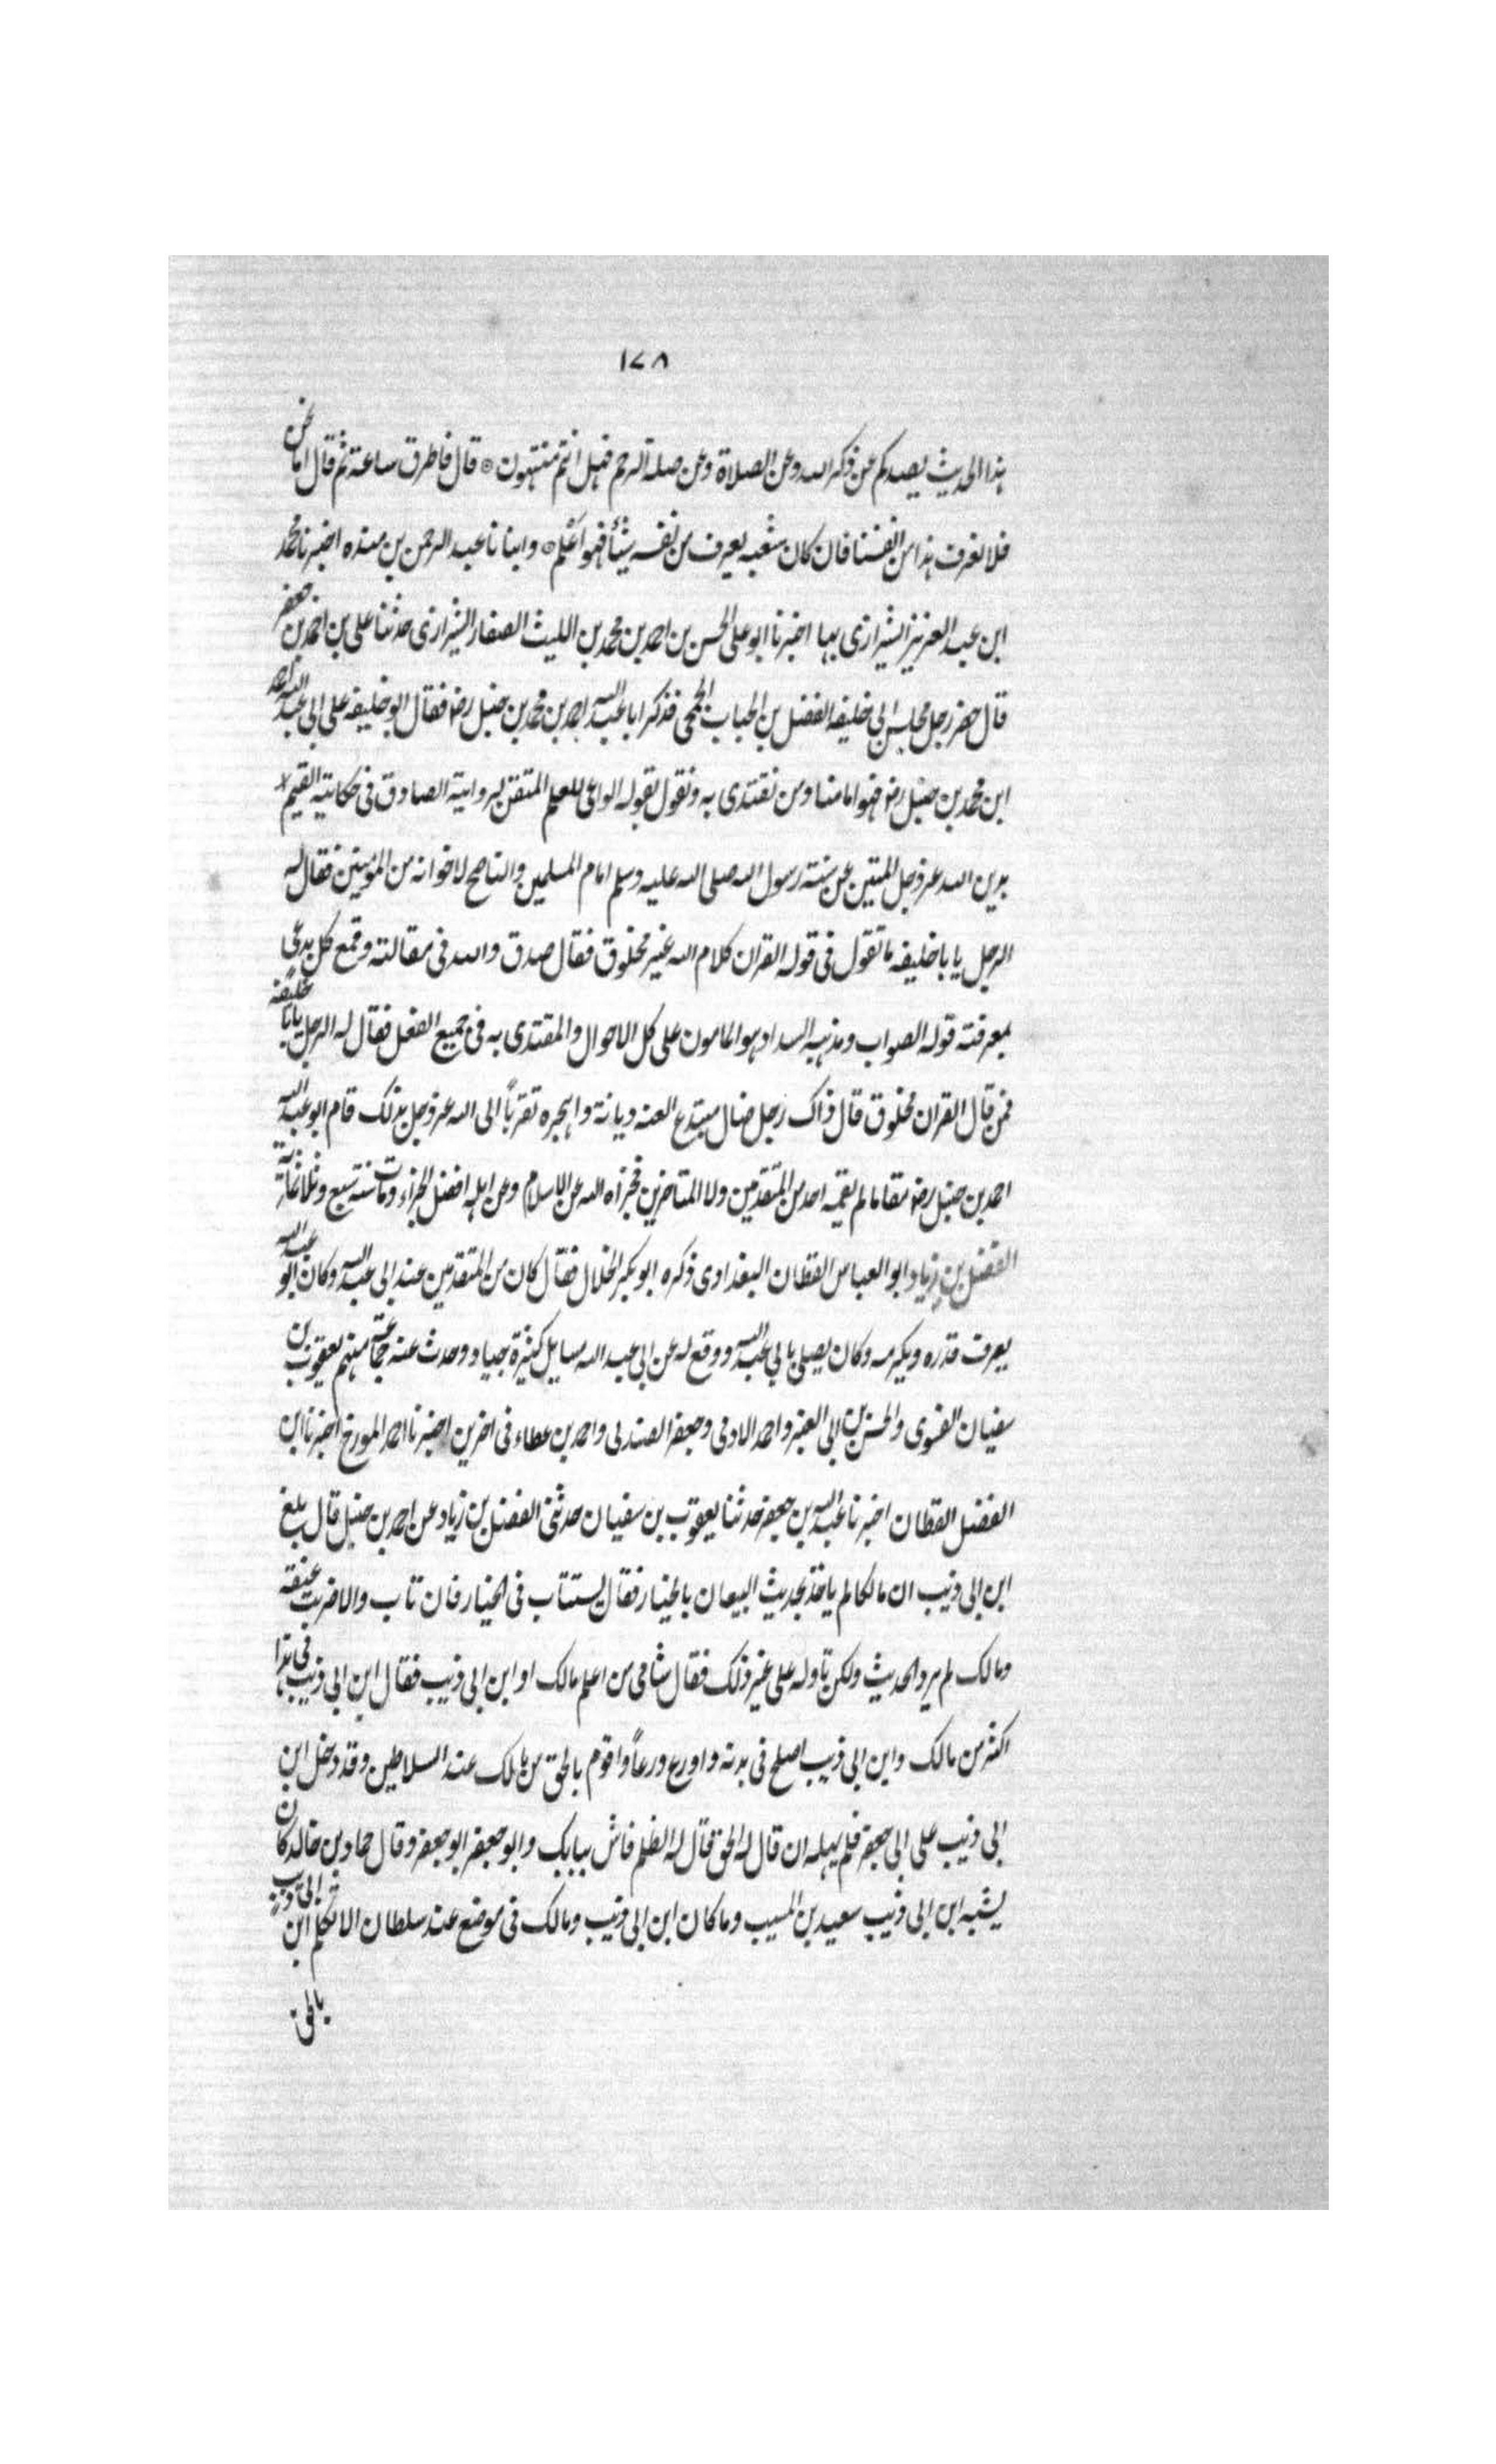 ١٧٨
هذا الحديث يصدكم عن ذكر الله وعن الصلاة وعن صلة الرحم فهل انتم منتهون ۞ قال فاطرق ساعة ثم قال اما نحن
فلا نعرف هذا من انفسنا فان كان شعبه يعرف من نفسه شيئاً فهو اَعْلم ۞ وانبانا عبد الرحمن بن منده اخبرنا محمد
ابن عبد العزيز الشيرازى بها اخبرنا ابو على الحسن بن احمد بن محمد بن الليث الصفار الشيرازى حدثنا على بن احمد بن جعفر
قال حضر رجل مجلس ابى خليفه الفضل بن الحباب الجمحى فذكر ابا عبد الله احمد بن محمد بن حنبل رضه فقال ابو خليفه على ابى عبد الله احمد
ابن محمد بن حنبل رضه فهو امامنا ومن نقتدى به ونقول بقوله الواعى للعلم المتقن لروايته الصادق فى حكايته القيم
بدين الله عز وجل المتين عن سنة رسول الله صلى الله عليه وسلم امام المسلمين والناصح لاخوانه من المؤمنين فقال له
الرجل يا با خليفه ما تقول فى قوله القران كلام الله غير مخلوق فقال صدق والله فى مقالته وقمع كل بدعى
بمعرفته قوله الصواب ومذهبه السداد هو المامون على كل الاحوال والمقتدى به فى جميع الفعل فقال له الرجل يا با خليفه
فمن قال القران مخلوق قال ذاك رجل ضال مبتدع العنه ديانة واهجره تقرباً الى الله عز وجل بذلك قام ابو عبد الله
احمد بن حنبل رضه مقاما لم يقمه احد من المتقدمين ولا المتاخرين فجزاه الله عن الاسلام وعن اهله افضل الجزاء ومات سنة سبع وثلاثمائة
الفضل بن زياد ابو العباس القطان البغدادى ذكره ابو بكر الخلال فقال كان من المتقدمين عند ابى عبد الله وكان ابو عبد الله
يعرف قدره ويكرمه وكان يصلى بابى عبد الله ووقع له عن ابى عبد الله مسايل كثيرة جياد وحدث عنه جماعة منهم يعقوب بن
سفيان الفسوى والحسن بن ابى العنبر واحمد الادمى وجعفر الصندلى واحمد بن عطاء فى اخرين اخبرنا احمد المورخ اخبرنا ابن
الفضل القطان اخبرنا عبد الله بن جعفر حدثنا يعقوب بن سفيان حدثنى الفضل بن زياد عن احمد بن حنبل قال بلغ
ابن ابى ذيب ان مالكا لم ياخذ بحديث البيعان بالخيار فقال يستتاب فى الخيار فان تاب والا ضربت عنقه
ومالك لم يرد الحديث ولكن تاوله على غير ذلك فقال شامى من اعلم مالك او ابن ابى ذيب فقال ابن ابى ذيب فى هذا
اكثر من مالك وابن ابى ذيب اصلح فى بدنه واورع ورعاً واقوم بالحق من مالك عند السلاطين وقد دخل ابن
ابى ذيب على ابى جعفر فلم يهله ان قال له الحق قال له الظلم فاش ببابك وابو جعفر ابو جعفر وقال حماد بن خالد كان
يشبه ابن ابى ذيب سعيد بن المسيب وما كان ابن ابى ذيب ومالك فى موضع عند سلطان الا تكلم ابن ابى ذيب
بالحق